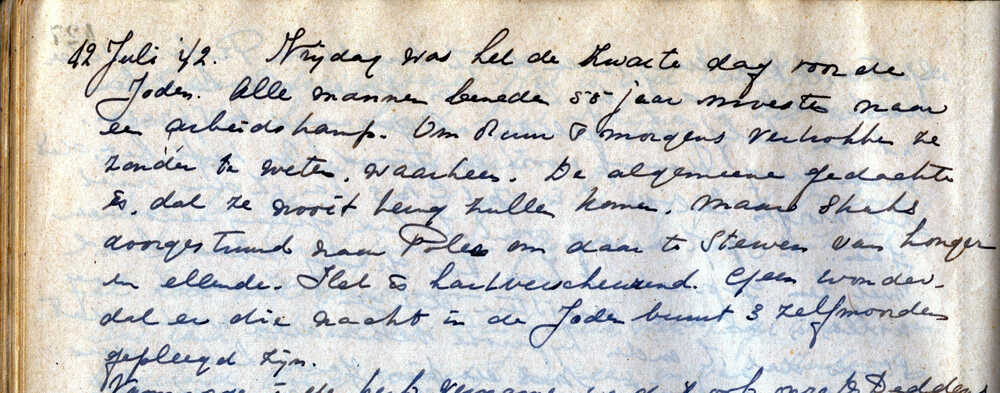 12 Juli '42. Vrijdag was het de zwarte dag voor de
Joden. Alle mannen beneden 55 jaar moesten naar
een arbeidskamp. Om 8 uur 's morgens vertrokken ze
zonder te weten, waarheen. De algemeene gedachte
is, dat ze nooit terug zullen komen, maar straks
doorgestuurd naar Polen om daar te sterven van honger
en ellende. Het is hartverscheurend. Geen wonder,
dat er die nacht in de Joden buurt 3 zelfmorden
gepleegd zijn.
in de kerk ook onze